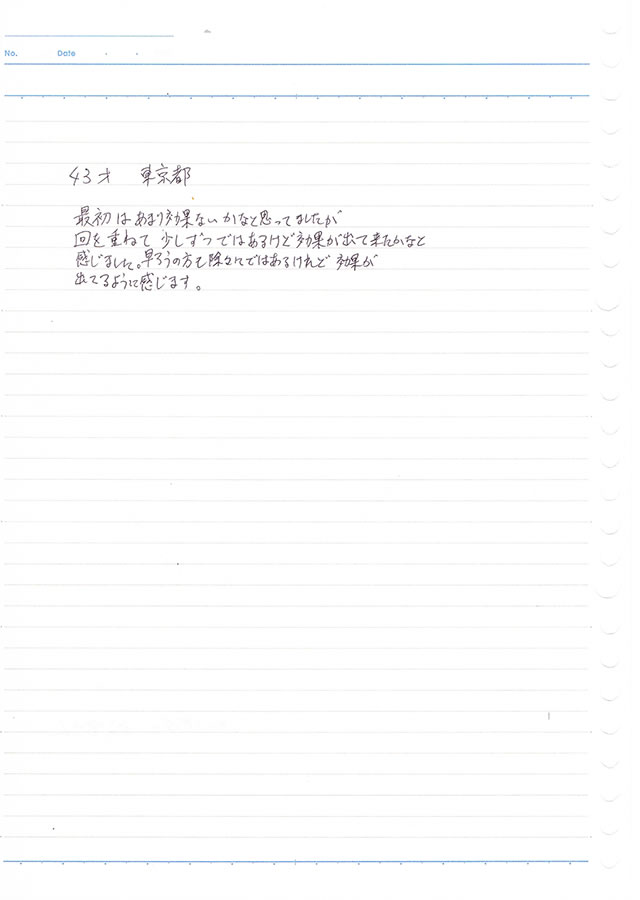 No.
Date
43才 東京都
最初はあまり効果ないかなと思ってましたが
回を重ねて少しずつではあるけど効果が出て来たかなと
感じました。早ろうの方も除々にではあるけれど効果が
出てるように感じます。